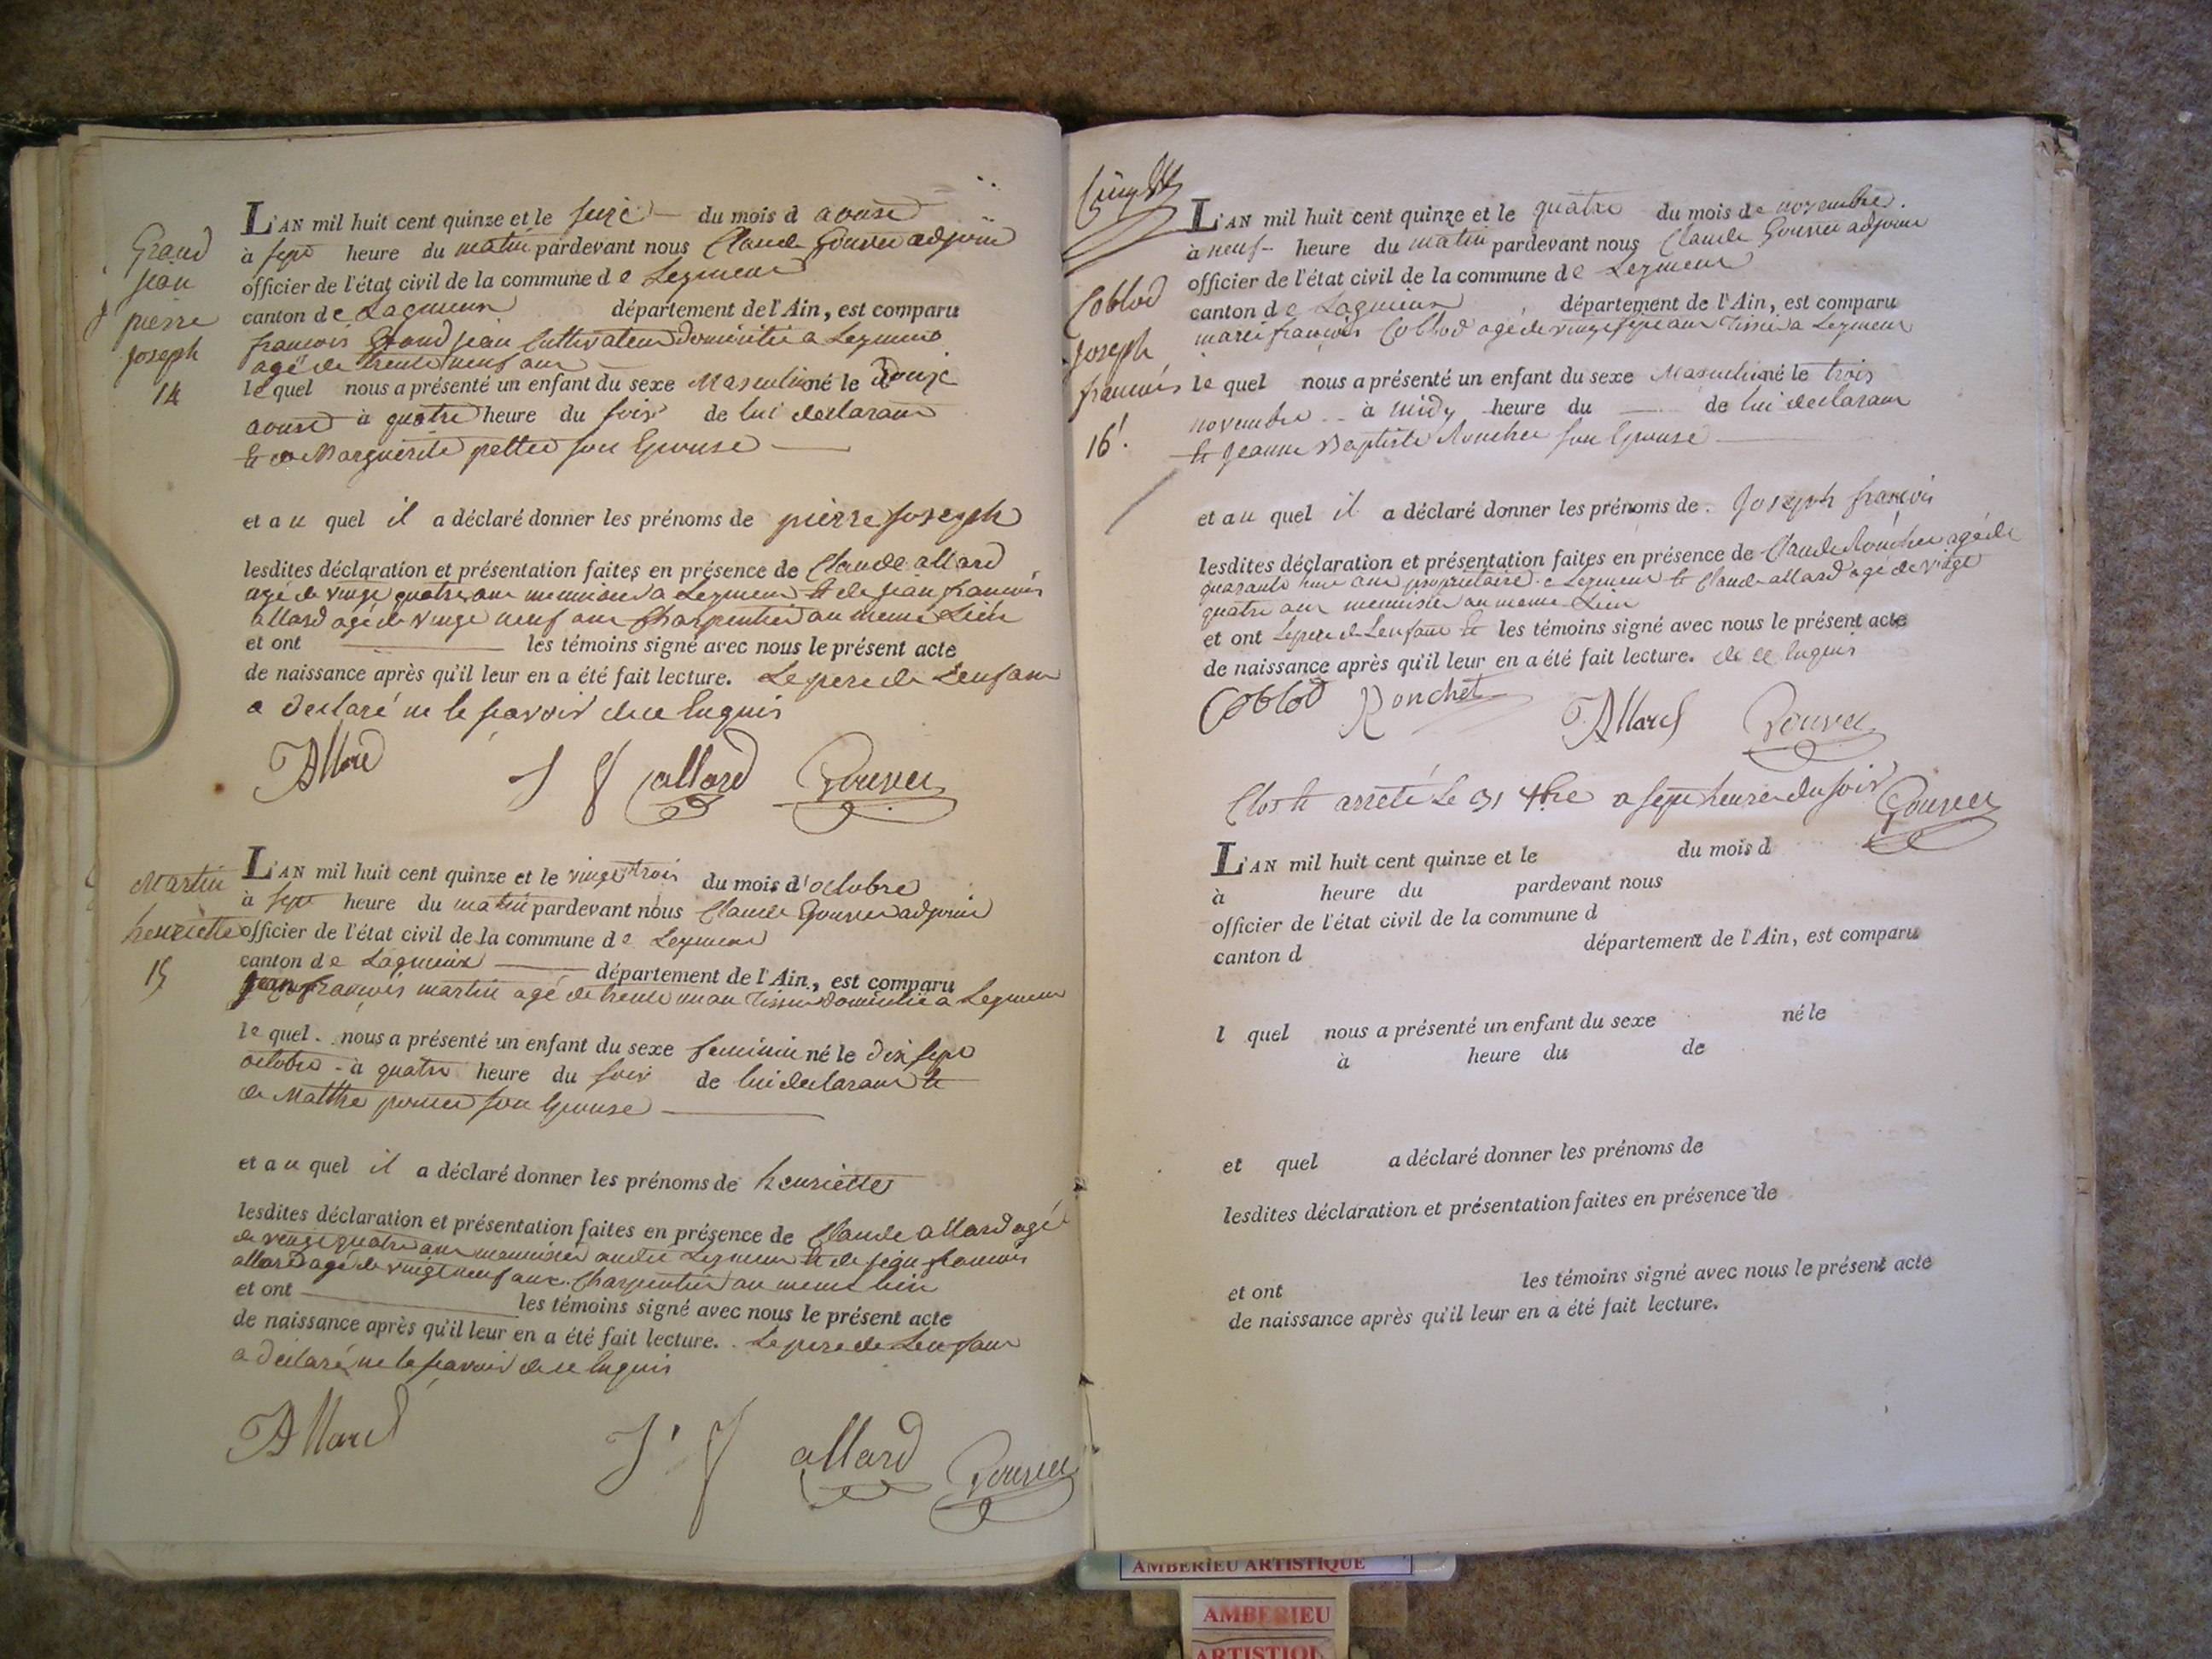 Grand
jean
pierre
joseph
14
L'AN mil huit cent quinze et le seize du mois d aoust
à sept heure du matin pardevant nous Claude Gouvee adjoint
officier de l'état civil de la commune de Leyment
canton de Lagnieux département de l'Ain, est comparu
francois Grand jean Cultivateur domicilié a Leyment
agé de trente neuf ans
le quel nous a présenté un enfant du sexe Masculin né le douze
aoust à quatre heure du soir de lui declarant
et de Marguerite pettee son Epouse
et au quel il a déclaré donner les prénoms de pierre joseph
lesdites déclaration et présentation faites en présence de Claude allard
agé de vingt quatre ans menuisier a Leyment et de jean francois
allard agé de vingt neuf ans Charpentier au meme Lieu
et ont les témoins signé avec nous le présent acte
de naissance après qu'il leur en a été fait lecture. Le pere de Lenfant
a declaré ne le scavoir de ce Enquis
Allard J f allard Gouvee
Martin
henriette
15
L'AN mil huit cent quinze et le vingt trois du mois d'octobre
à sept heure du matin pardevant nous Claude Gouvee adjoint
officier de l'état civil de la commune de Leyment
canton de Lagnieux département de l'Ain, est comparu
jean francois martin agé de trente un an Tissier domicilié a Leyment
le quel nous a présenté un enfant du sexe feminin né le dix sept
octobre à quatre heure du soir de lui declarant et
de Matthe son Epouse
et au quel il a déclaré donner les prénoms de henriette
lesdites déclaration et présentation faites en présence de Claude allard agé
de vingt quatre ans menuisier Leyment et de jean francois
allard agé de vingt neuf ans Charpentier au meme lieu
et ont les témoins signé avec nous le présent acte
de naissance après qu'il leur en a été fait lecture. Le pere de Lenfant
a declaré ne le scavoir de ce Enquis
Allard J f allard Gouvee
Coblod
joseph
francois
16
L'AN mil huit cent quinze et le quatre du mois de novembre.
à neuf heure du matin pardevant nous Claude Gouvee adjoint
officier de l'état civil de la commune de Leyment
canton de Lagnieux département de l'Ain, est comparu
francois Coblod agé de vingt sept ans Tissier a Leyment
le quel nous a présenté un enfant du sexe Masculin né le trois
novembre à midy heure du de lui declarant
et Jeanne Baptiste Ronchet son Epouse
et au quel il a déclaré donner les prénoms de Joseph francois
lesdites déclaration et présentation faites en présence de Claude Ronchet agé de
quarante ans proprietaire a Leyment et Claude allard agé de vingt
quatre ans menuisier au meme Lieu
et ont Le pere de Lenfant et les témoins signé avec nous le présent acte
de naissance après qu'il leur en a été fait lecture. de ce Enquis
Coblod Ronchet Allard Gouvee
Clos et arreté Le 31 Xbre a sept heures du soir Gouvee
L'AN mil huit cent quinze et le du mois d
à heure du pardevant nous
officier de l'état civil de la commune d
canton d département de l'Ain, est comparu
l quel nous a présenté un enfant du sexe né le
à heure du de
et quel a déclaré donner les prénoms de
lesdites déclaration et présentation faites en présence de
et ont les témoins signé avec nous le présent acte
de naissance après qu'il leur en a été fait lecture.
AMBERIEU ARTISTIQUE
AMBERIEU
ARTISTIQU